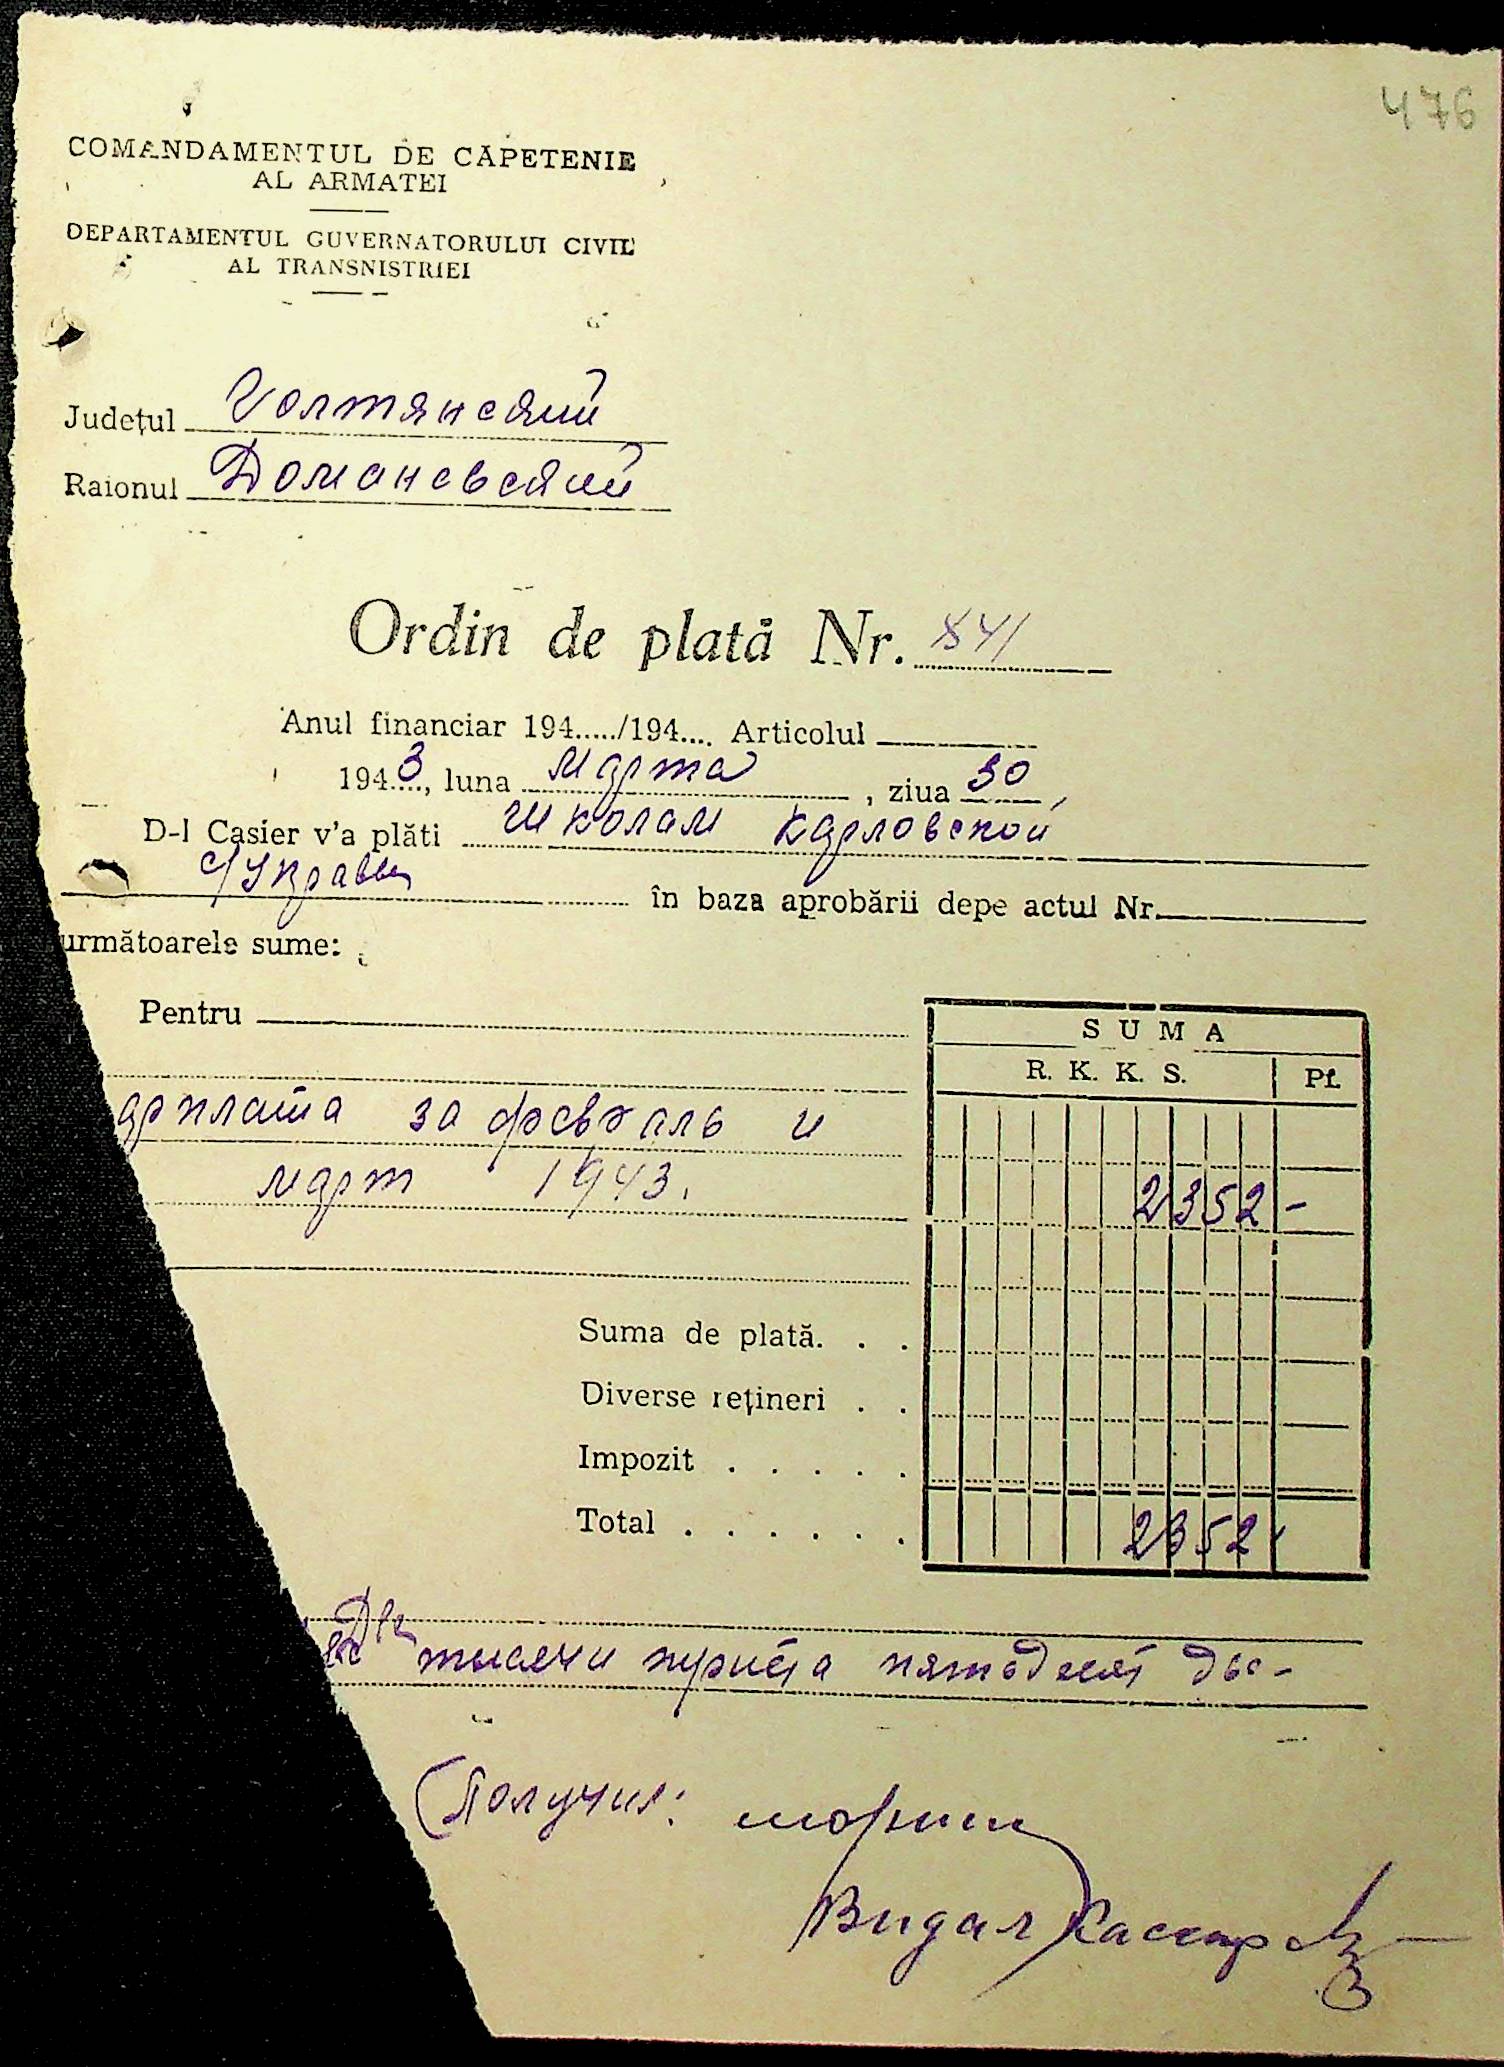 476
COMANDAMENTUL DE CĂPETENIE
AL ARMATEI
DEPARTAMENTUL GUVERNATORULUI CIVIL
AL TRANSNISTRIEI
Județul Голтянский
Raionul Доманевский
Ordin de plată Nr. 841
Anul financiar 194...../194.... Articolul
1943, luna Марта, ziua 30,
D-l Casier v'a plăti школам Карловской
с/Управы în baza aprobării depe actul Nr.
următoarele sume:
Pentru
SUMA
R. K. K. S. Pf.
арплата за февраль и
март 1943. 2352 -
Suma de plată. . .
Diverse rețineri . .
Impozit . . . . .
Total . . . . . . 2352
Две
тысячи триста пятьдесят две-
Получил:
Видал Кассир